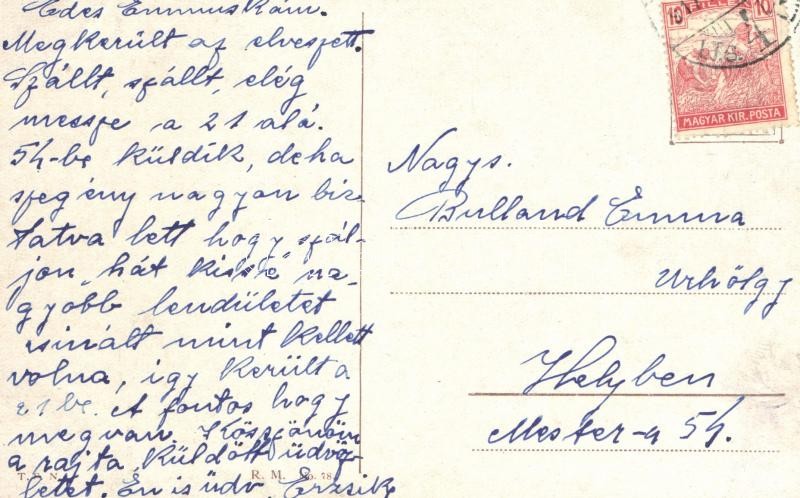 Édes Emmuskám.
Megkerült az elveszett.
Szállt, szállt, elég
messze a 21 alá.
54-be küldik, deha
szegény nagyon biz-
tatva lett hogy "szál-
jon" hát kissé na-
gyobb lendületet
csinált mint kellett
volna, igy került a
21 be. A fontos hogy
megvan. Köszönöm
a rajta küldött üdvöz-
letet. Én is üdv. Erzsike
R. M.
10 10
MAGYAR KIR. POSTA
Nagys.
Bulland Emma
Urhölgy
Helyben
Mester-u 54.